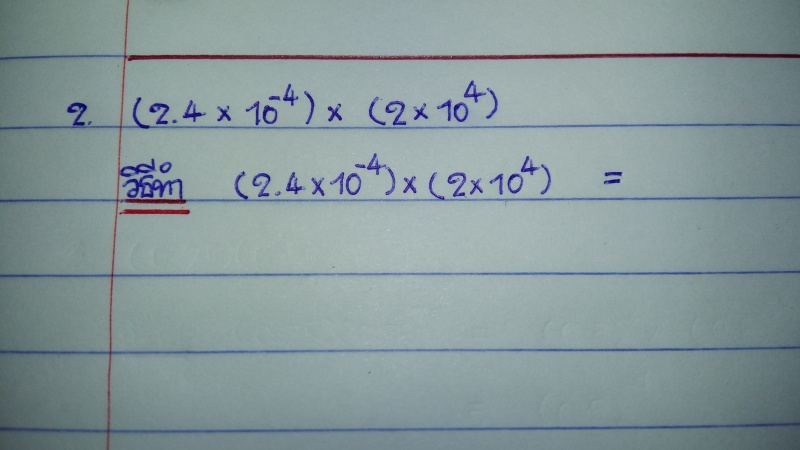 2. (2.4 × 10⁻⁴) × (2 × 10⁴)
วิธีทำ (2.4 × 10⁻⁴) × (2 × 10⁴) =